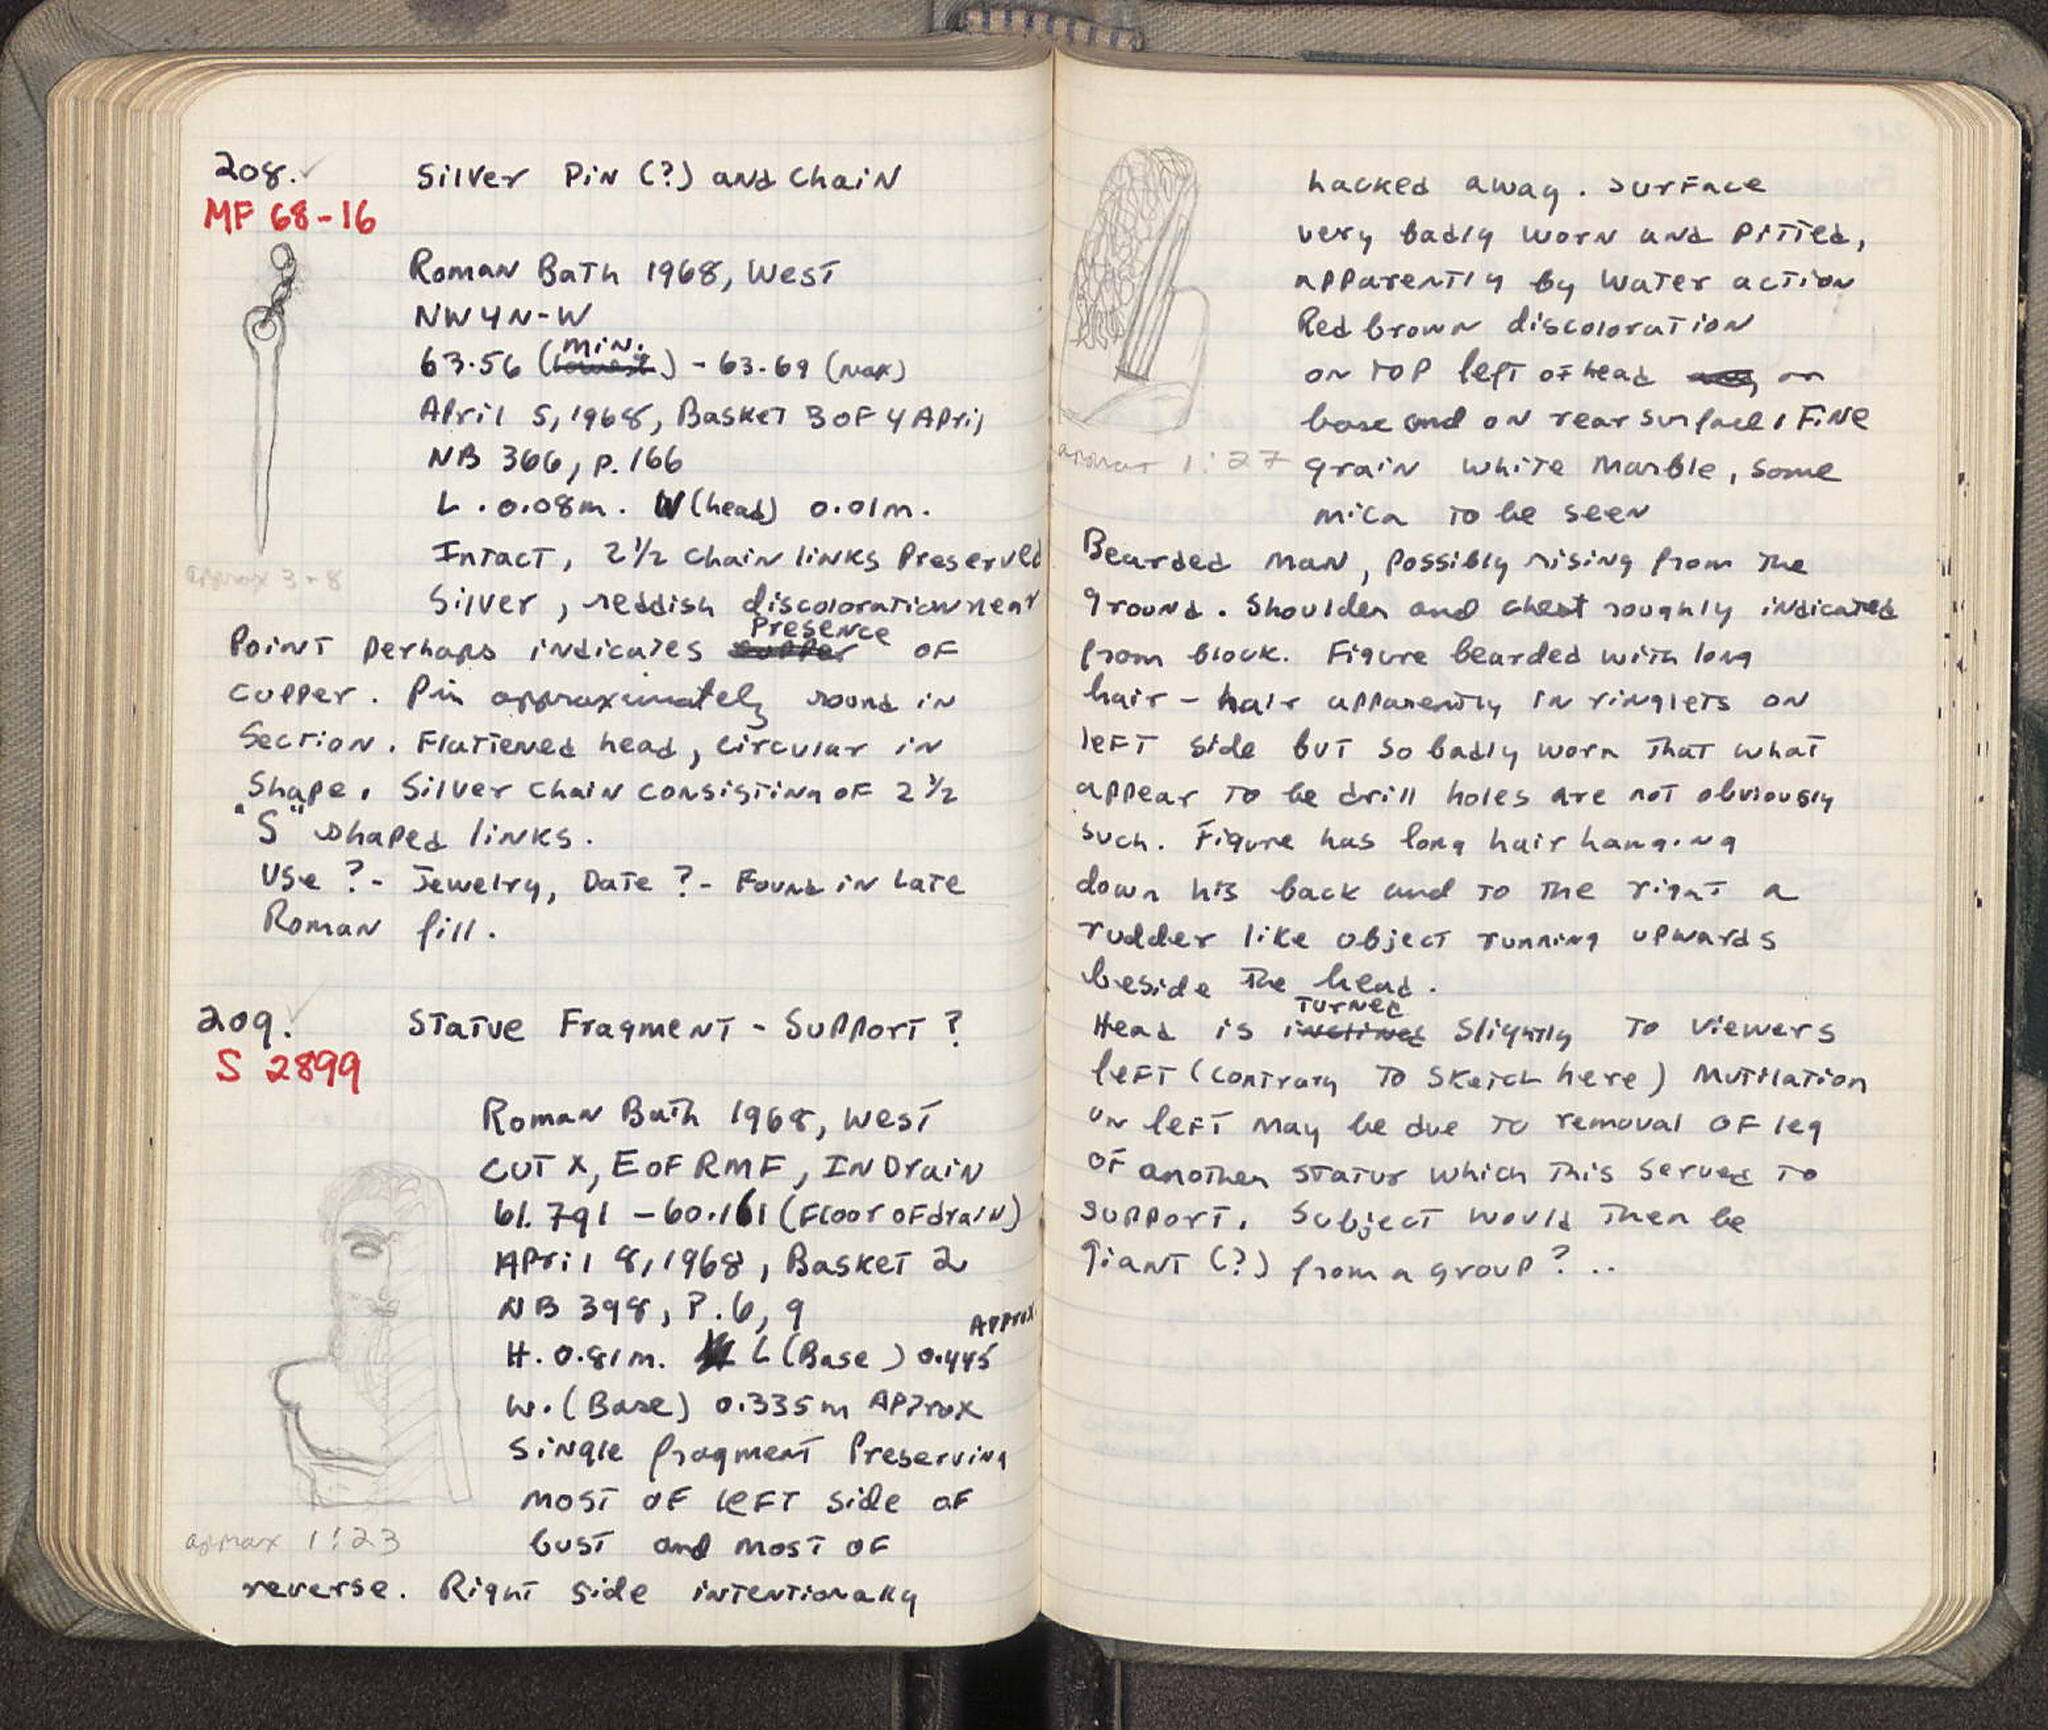 208. ✓ Silver Pin (?) and Chain
MF 68-16
Roman Bath 1968, West
NW4N-W
63.56 (lowest min.) - 63.69 (max)
April 5, 1968, Basket 3 of 4 April
NB 366, p. 166
L. 0.08m. W (head) 0.01m.
Intact, 2 1/2 chain links preserved
approx 3-8
Silver, reddish discoloration near
point perhaps indicates copper presence of
copper. Pin approximately round in
section. Flattened head, circular in
shape. Silver chain consisting of 2 1/2
"S" shaped links.
Use? - Jewelry, Date? - Found in Late
Roman fill.
209. ✓ Statue Fragment - Support?
S 2899
Roman Bath 1968, West
Cut X, E of RMF, In Drain
61.791 - 60.161 (Floor of drain)
April 8, 1968, Basket 2
NB 398, P. 6, 9
H. 0.81m. L (Base) 0.445 Approx.
W. (Base) 0.335m Approx
Single fragment preserving
most of left side of
bust and most of
approx 1:23
reverse. Right side intentionally
hacked away. Surface
very badly worn and pitted,
apparently by water action
Red brown discoloration
on top left of head on
base and on rear surface, Fine
approx 1:27
grain white marble, some
mica to be seen
Bearded man, possibly rising from the
ground. Shoulder and chest roughly indicated
from block. Figure bearded with long
hair - hair apparently in ringlets on
left side but so badly worn that what
appear to be drill holes are not obviously
such. Figure has long hair hanging
down his back and to the right a
rudder like object running upwards
beside the head.
Head is inclined turned slightly to viewers
left (contrary to sketch here) Mutilation
on left may be due to removal of leg
of another statue which this served to
support. Subject would then be
giant (?) from a group? ..